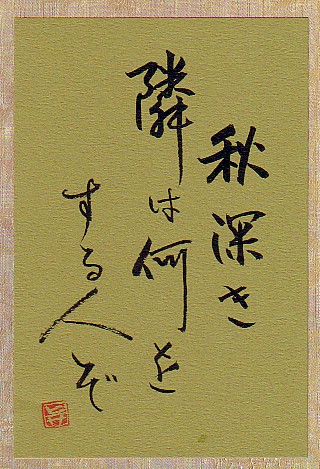 秋深き
隣は何を
する人ぞ